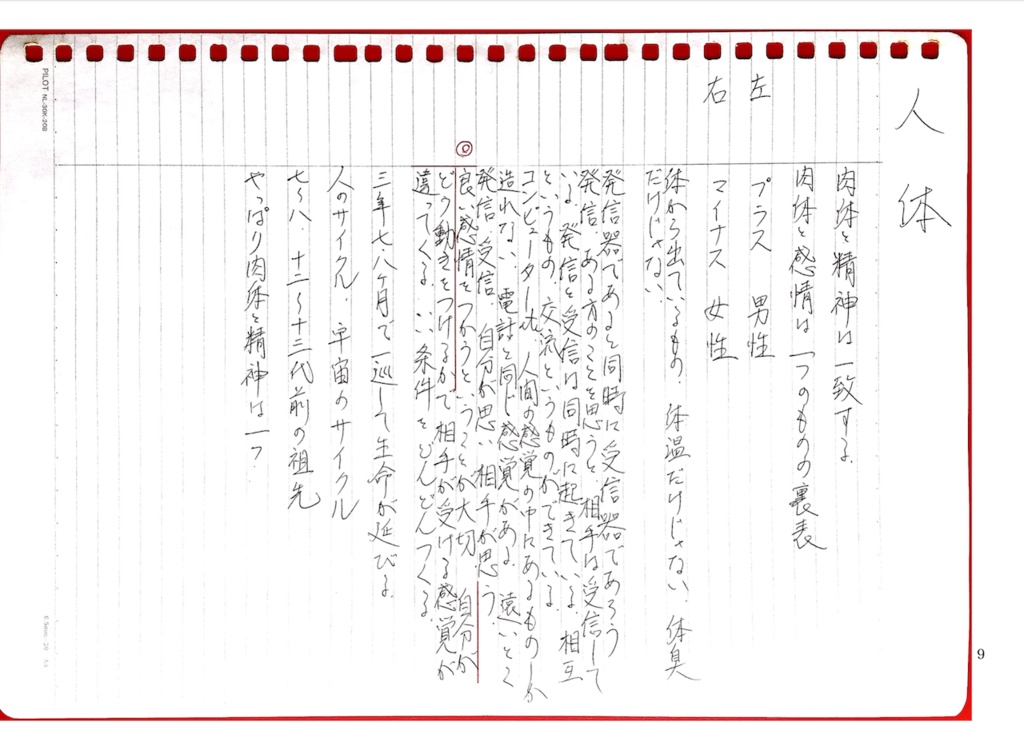 人体
肉体と精神は一致する.
肉体と感情は一つのものの裏表
左 プラス 男性
右 マイナス 女性
体から出ているもの. 体温だけじゃない. 体臭
だけじゃない
発信器であると同時に受信器であろう
発信. ある方のことを思うと. 相手は受信して
いる. 発信と受信は同時に起きている. 相互
というもの. 交流というものができている.
コンピューター比. 人間の感覚の中にあるものしか
造れない. 電話と同じ感覚がある. 遠いとく
発信. 受信. 自分が思い. 相手が思う.
◎
良い感情をつかうということが大切. 自分が
どう動きをつけるかで相手が受ける感覚が
違ってくる. いい条件をどんどんつくる.
三年七.八ヶ月で一巡して生命が延びる.
人のサイクル. 宇宙のサイクル
七〜八. 十二〜十三代前の祖先
やっぱり肉体と精神は一つ.
PILOT NL-30K-20B
9